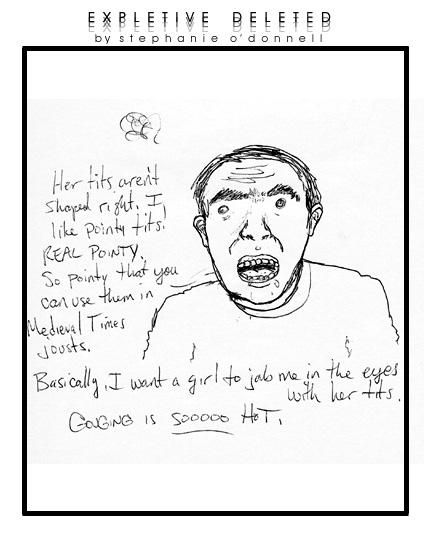 EXPLETIVE DELETED
by stephanie o'donnell
Her tits aren't
shaped right. I
like pointy tits!
REAL POINTY.
So pointy that you
can use them in
Medieval Times
jousts.
Basically, I want a girl to jab me in the eyes
with her tits.
GOUGING IS SOOOOO HOT.